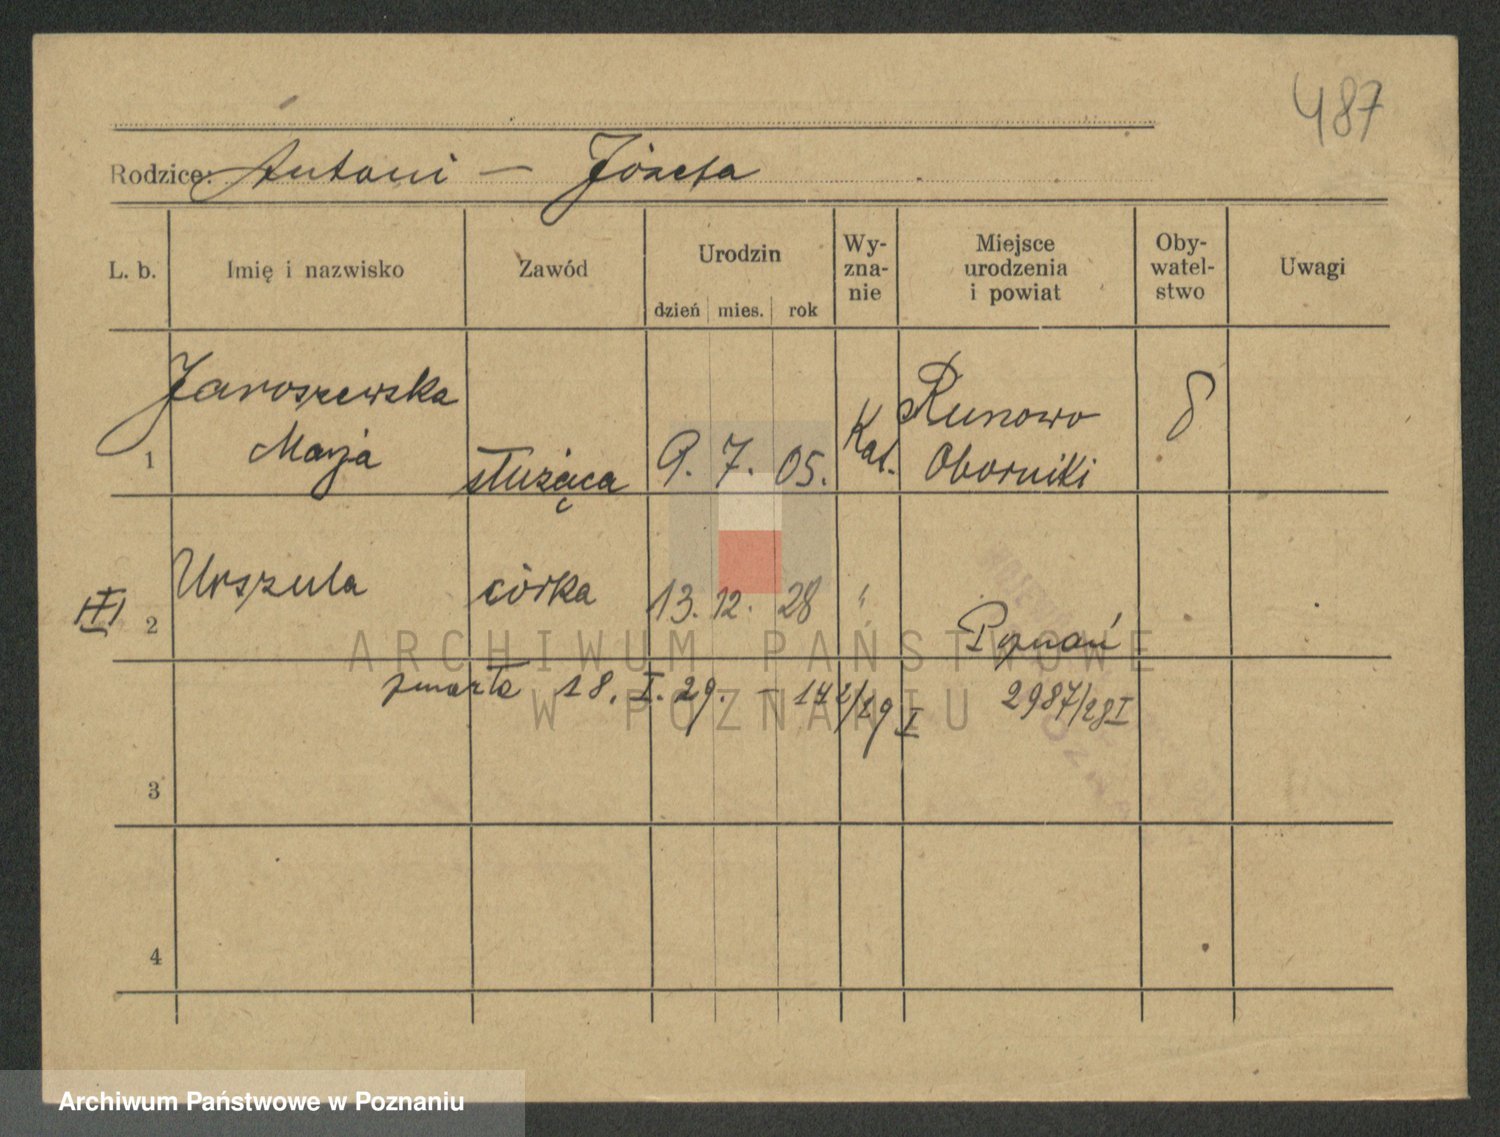 487
Rodzice: Antoni — Józefa
L. b. Imię i nazwisko Zawód Urodzin Wy- Miejsce Oby- Uwagi
zna- urodzenia watel-
dzień mies. rok nie i powiat stwo
Jaroszewska Runowo
1 Marja służąca 9. 7. 05. Kat. Oborniki
Urszula córka 13. 12. 28 " Poznań
2
zmarła 18. I. 29. - 172/29 I 2987/28 I
3
4
ARCHIWUM PAŃSTWOWE
W POZNANIU
Archiwum Państwowe w Poznaniu